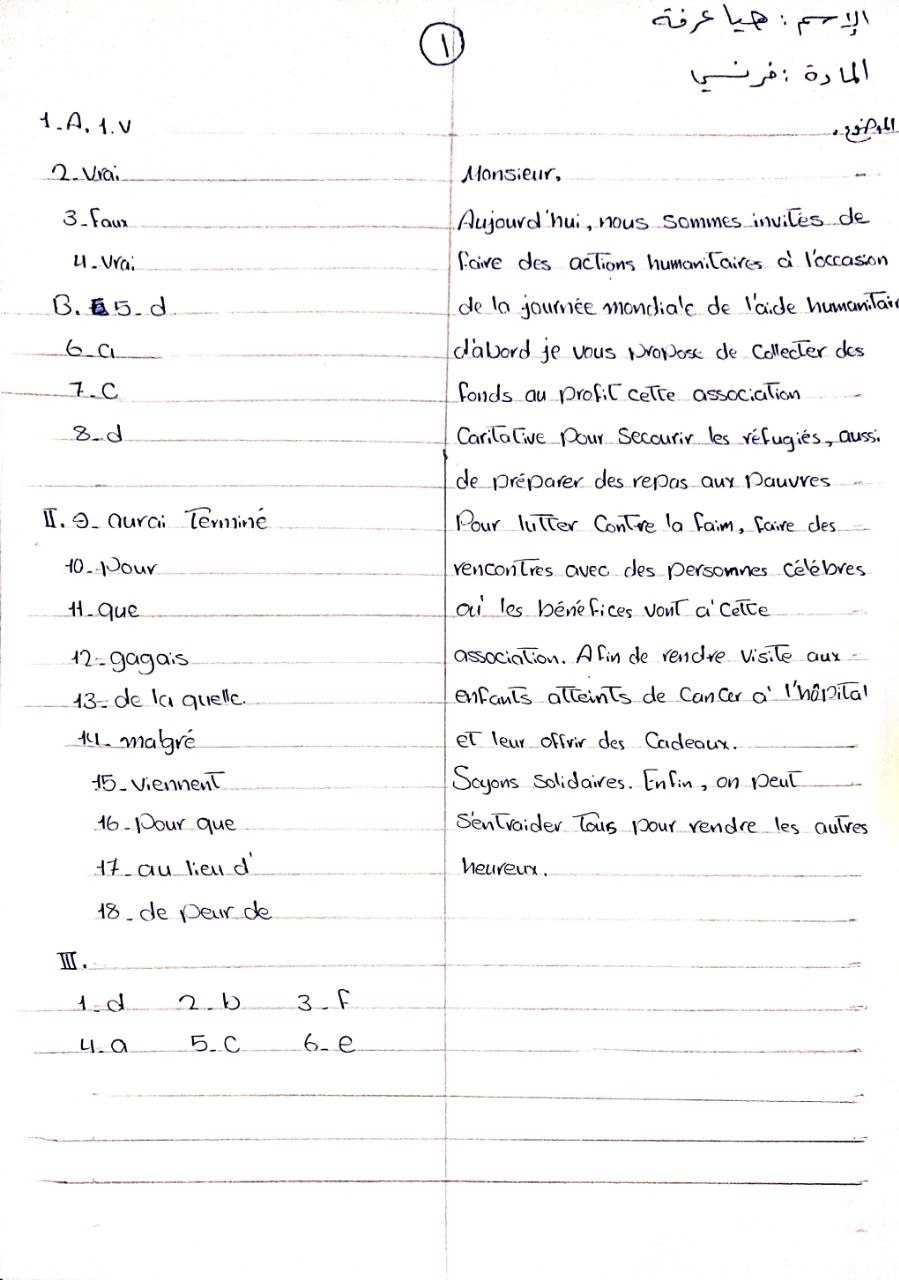 الإسم : هيا عرفة
المادة : فرنسي
1
1.A. 1.V
2. Vrai
3. Faux
4. Vrai
B. 5. d
6. a
7. C
8. d
II. 9. aurai terminé
10. pour
11. que
12. gagais
13. de la quelle.
14. malgré
15. viennent
16. Pour que
17. au lieu d'
18. de peur de
III.
1. d 2. b 3. f
4. a 5. c 6. e
الموضوع.
Monsieur,
Aujourd'hui, nous sommes invités de
faire des actions humanitaires à l'occasion
de la journée mondiale de l'aide humanitair
d'abord je vous propose de collecter des
fonds au profit cette association
Caritative pour secourir les réfugiés, aussi
de préparer des repas aux pauvres
Pour lutter contre la faim, faire des
rencontres avec des personnes célébres
où les bénéfices vont à cette
association. Afin de rendre visite aux
enfants atteints de Cancer à l'hôpital
et leur offrir des Cadeaux.
Soyons solidaires. Enfin, on peut
s'entraider tous pour rendre les autres
heureux.